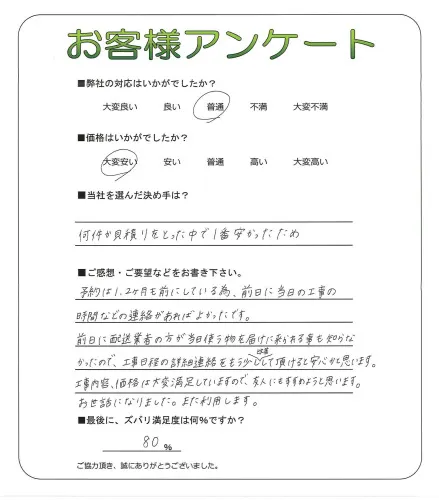 お客様アンケート
■弊社の対応はいかがでしたか？
大変良い 良い 普通 不満 大変不満
■価格はいかがでしたか？
大変安い 安い 普通 高い 大変高い
■当社を選んだ決め手は？
何件か見積りをとった中で1番安かったため
■ご感想・ご要望などをお書き下さい。
予約は1.2ヶ月も前にしている為、前日に当日の工事の
時間などの連絡があればよかったです。
前日に配送業者の方が当日使う物を届けに来られる事も知らな
かったので、工事日程の詳細連絡をもう少し改善して頂けると安心かと思います。
工事内容、価格は大変満足していますので、友人にもすすめようと思います。
お世話になりました。また利用します。
■最後に、ズバリ満足度は何%ですか？
80 %
ご協力頂き、誠にありがとうございました。